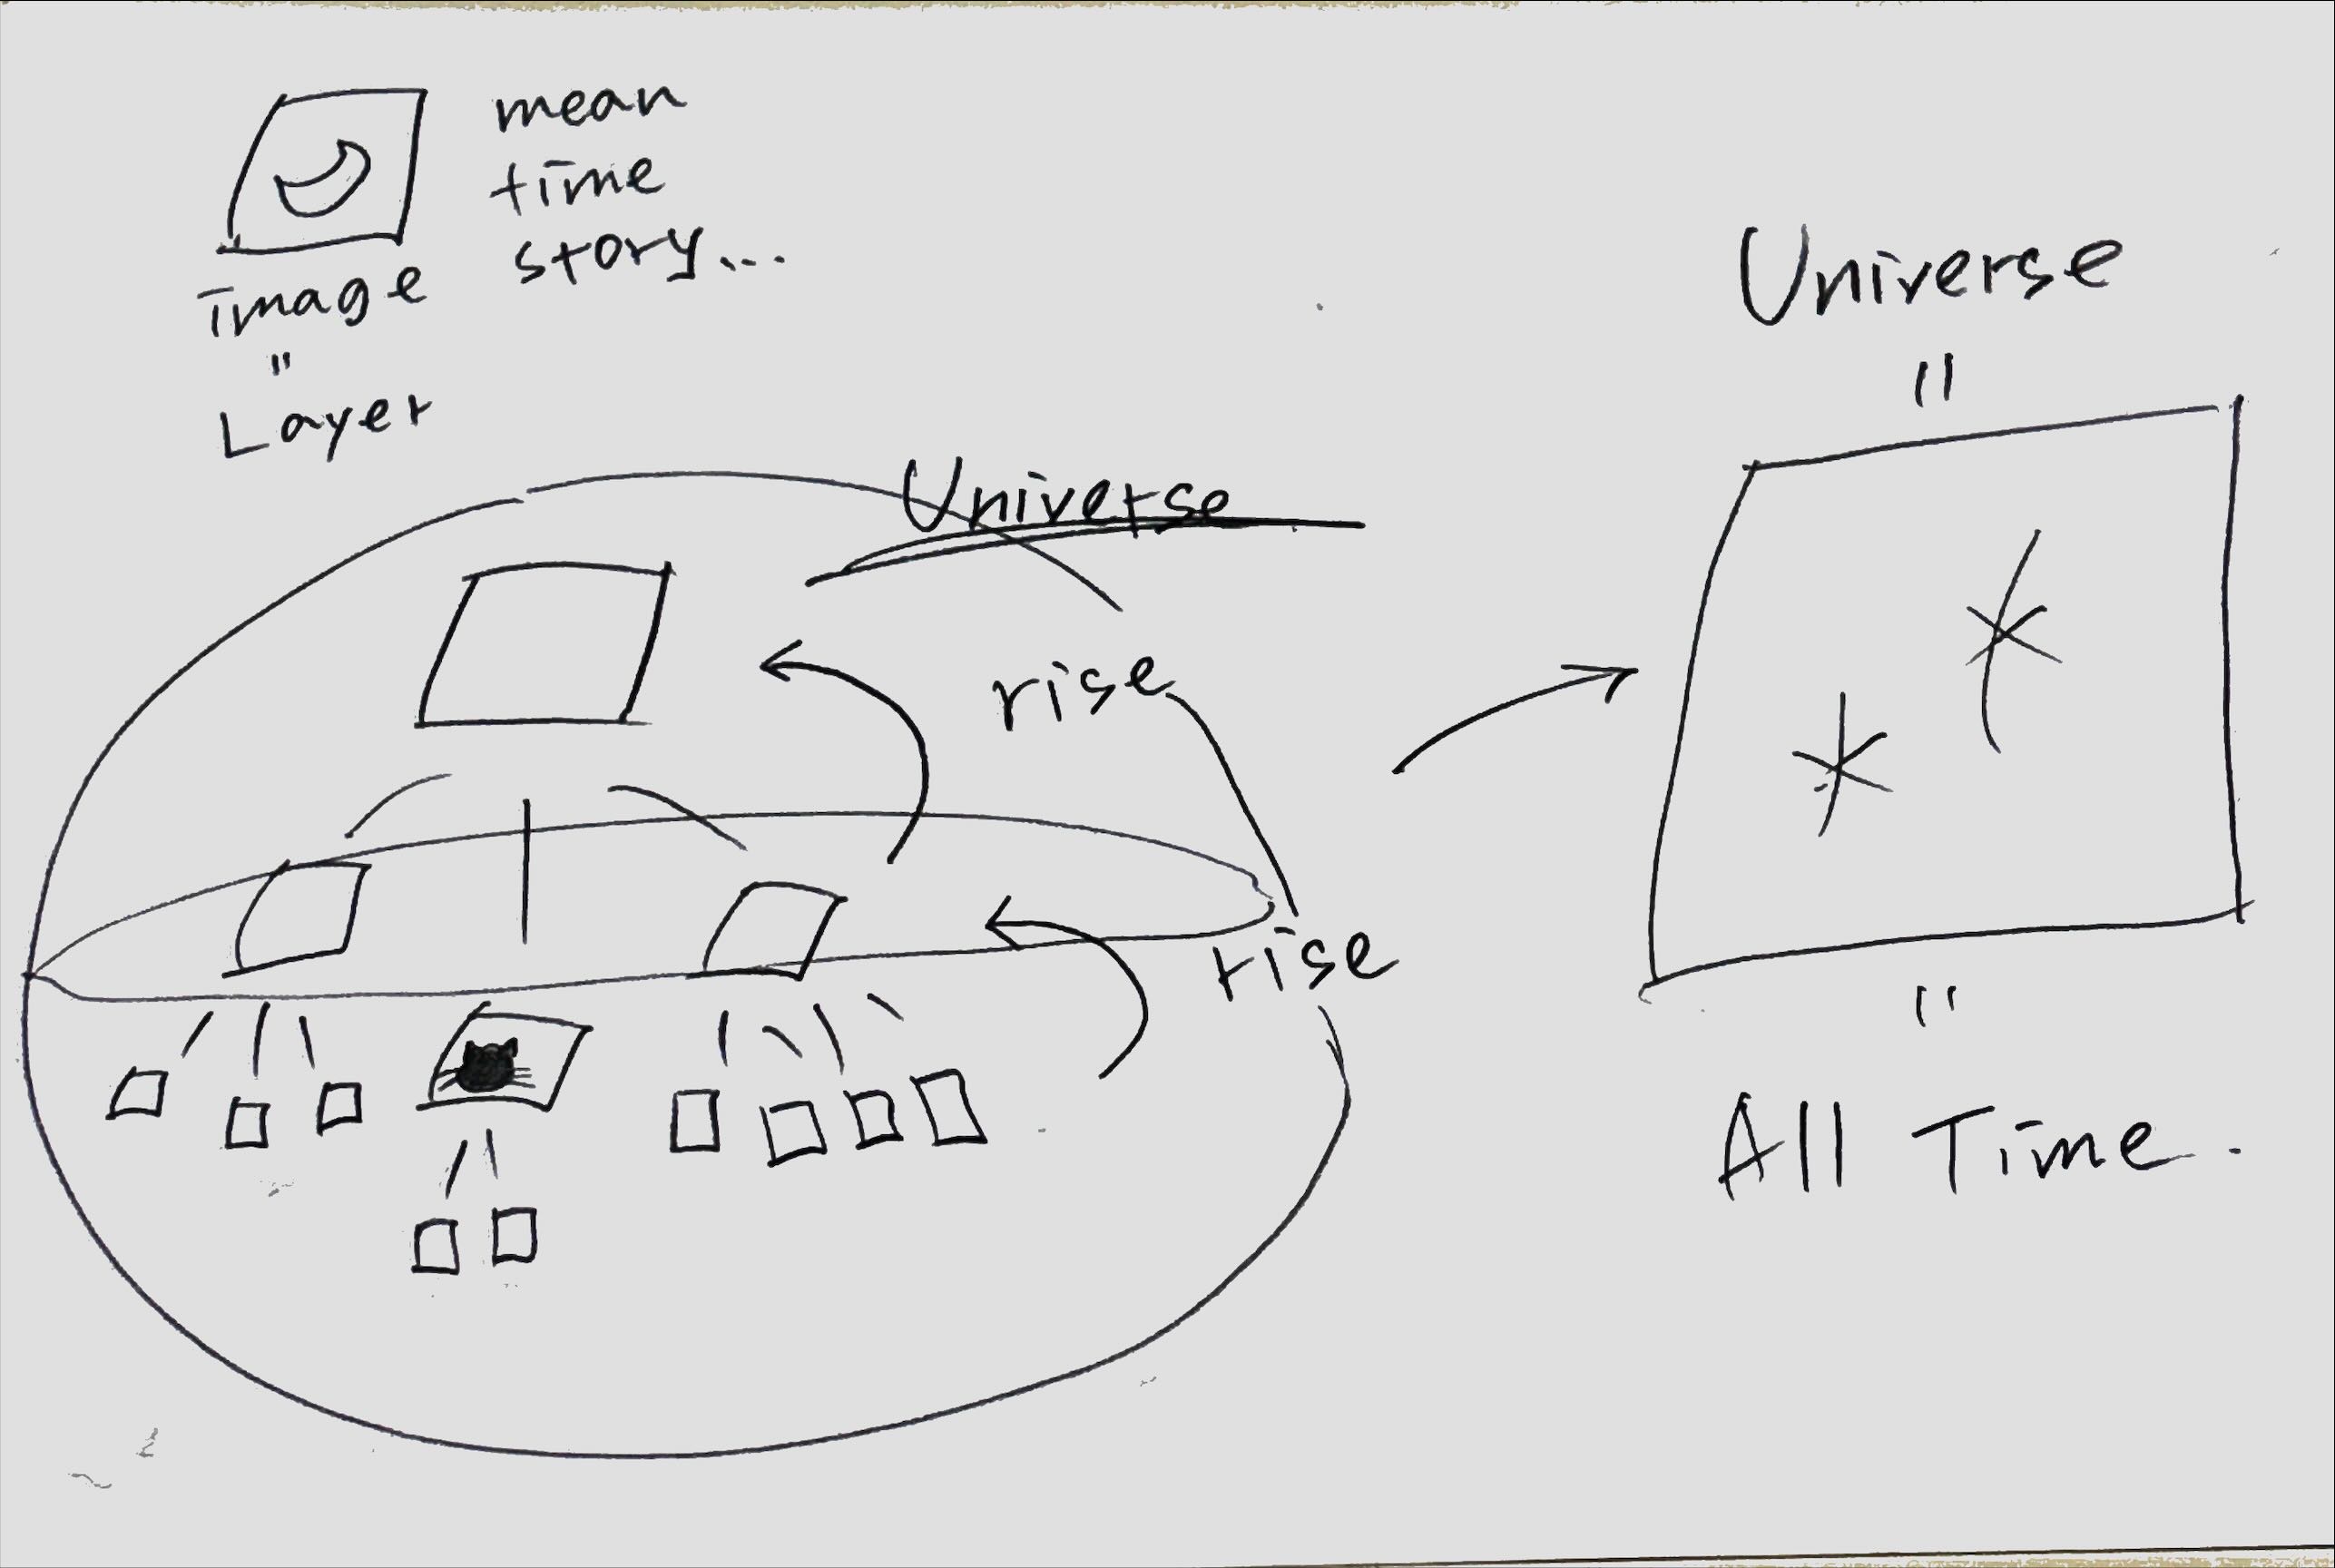 mean
time
story...
image
"
Layer
Universe
rise
rise
Universe
"
"
All Time.